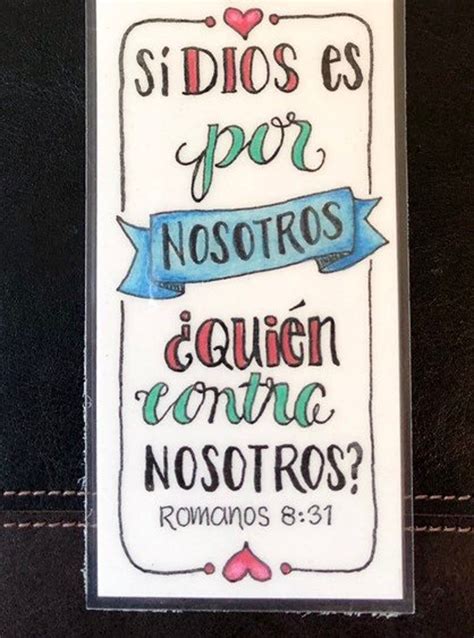 Sí DIOS es
por
NOSOTROS
¿Quién
contra
NOSOTROS?
Romanos 8:31